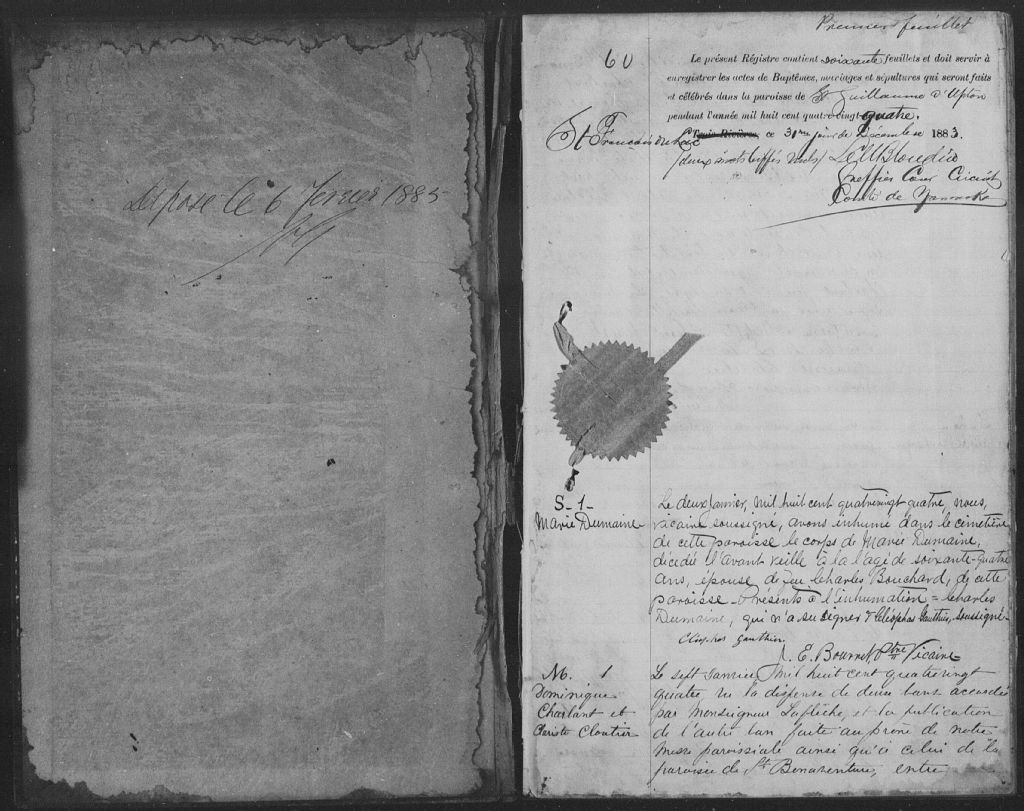 Déposé le 6 février 1885
Premier feuillet
60
Le présent Régistre contient soixante feuillets et doit servir à
enregistrer les actes de Baptêmes, mariages et sépultures qui seront faits
et célébrés dans la paroisse de St Guillaume d'Upton
pendant l'année mil huit cent quatre-vingt quatre.
St François du Lac
Trois-Rivières, ce 31me jour de Décembre 1883.
(deux mots biffés nuls)
Greffier Cour Circuit
Comté de Yamaska
S-1-
Marie Dumaine
Le deux Janvier, mil huit cent quatrevingt quatre, nous,
vicaire soussigné, avons inhumé dans le cimetière
de cette paroisse le corps de Marie Dumaine,
décédée l'avant veille à l'agé de soixante-quatre
ans, épouse de feu Charles Bouchard, de cette
paroisse. Présents à l'inhumation = Charles
Dumaine, qui n'a su signer & Cléophas Gauthier, soussigné.
Cléophas Gauthier
E. Bourret Ptre Vicaire
M. 1
Dominique
Chartant et
Cloutier
Le sept Janvier, mil huit cent quatrevingt
quatre, vu la dispense de deux bans accordée
par Monseigneur Laflèche, et la publication
de l'autre ban faite au prône de notre
messe paroissiale ainsi qu'à celui de la
paroisse de St Bonaventure, entre